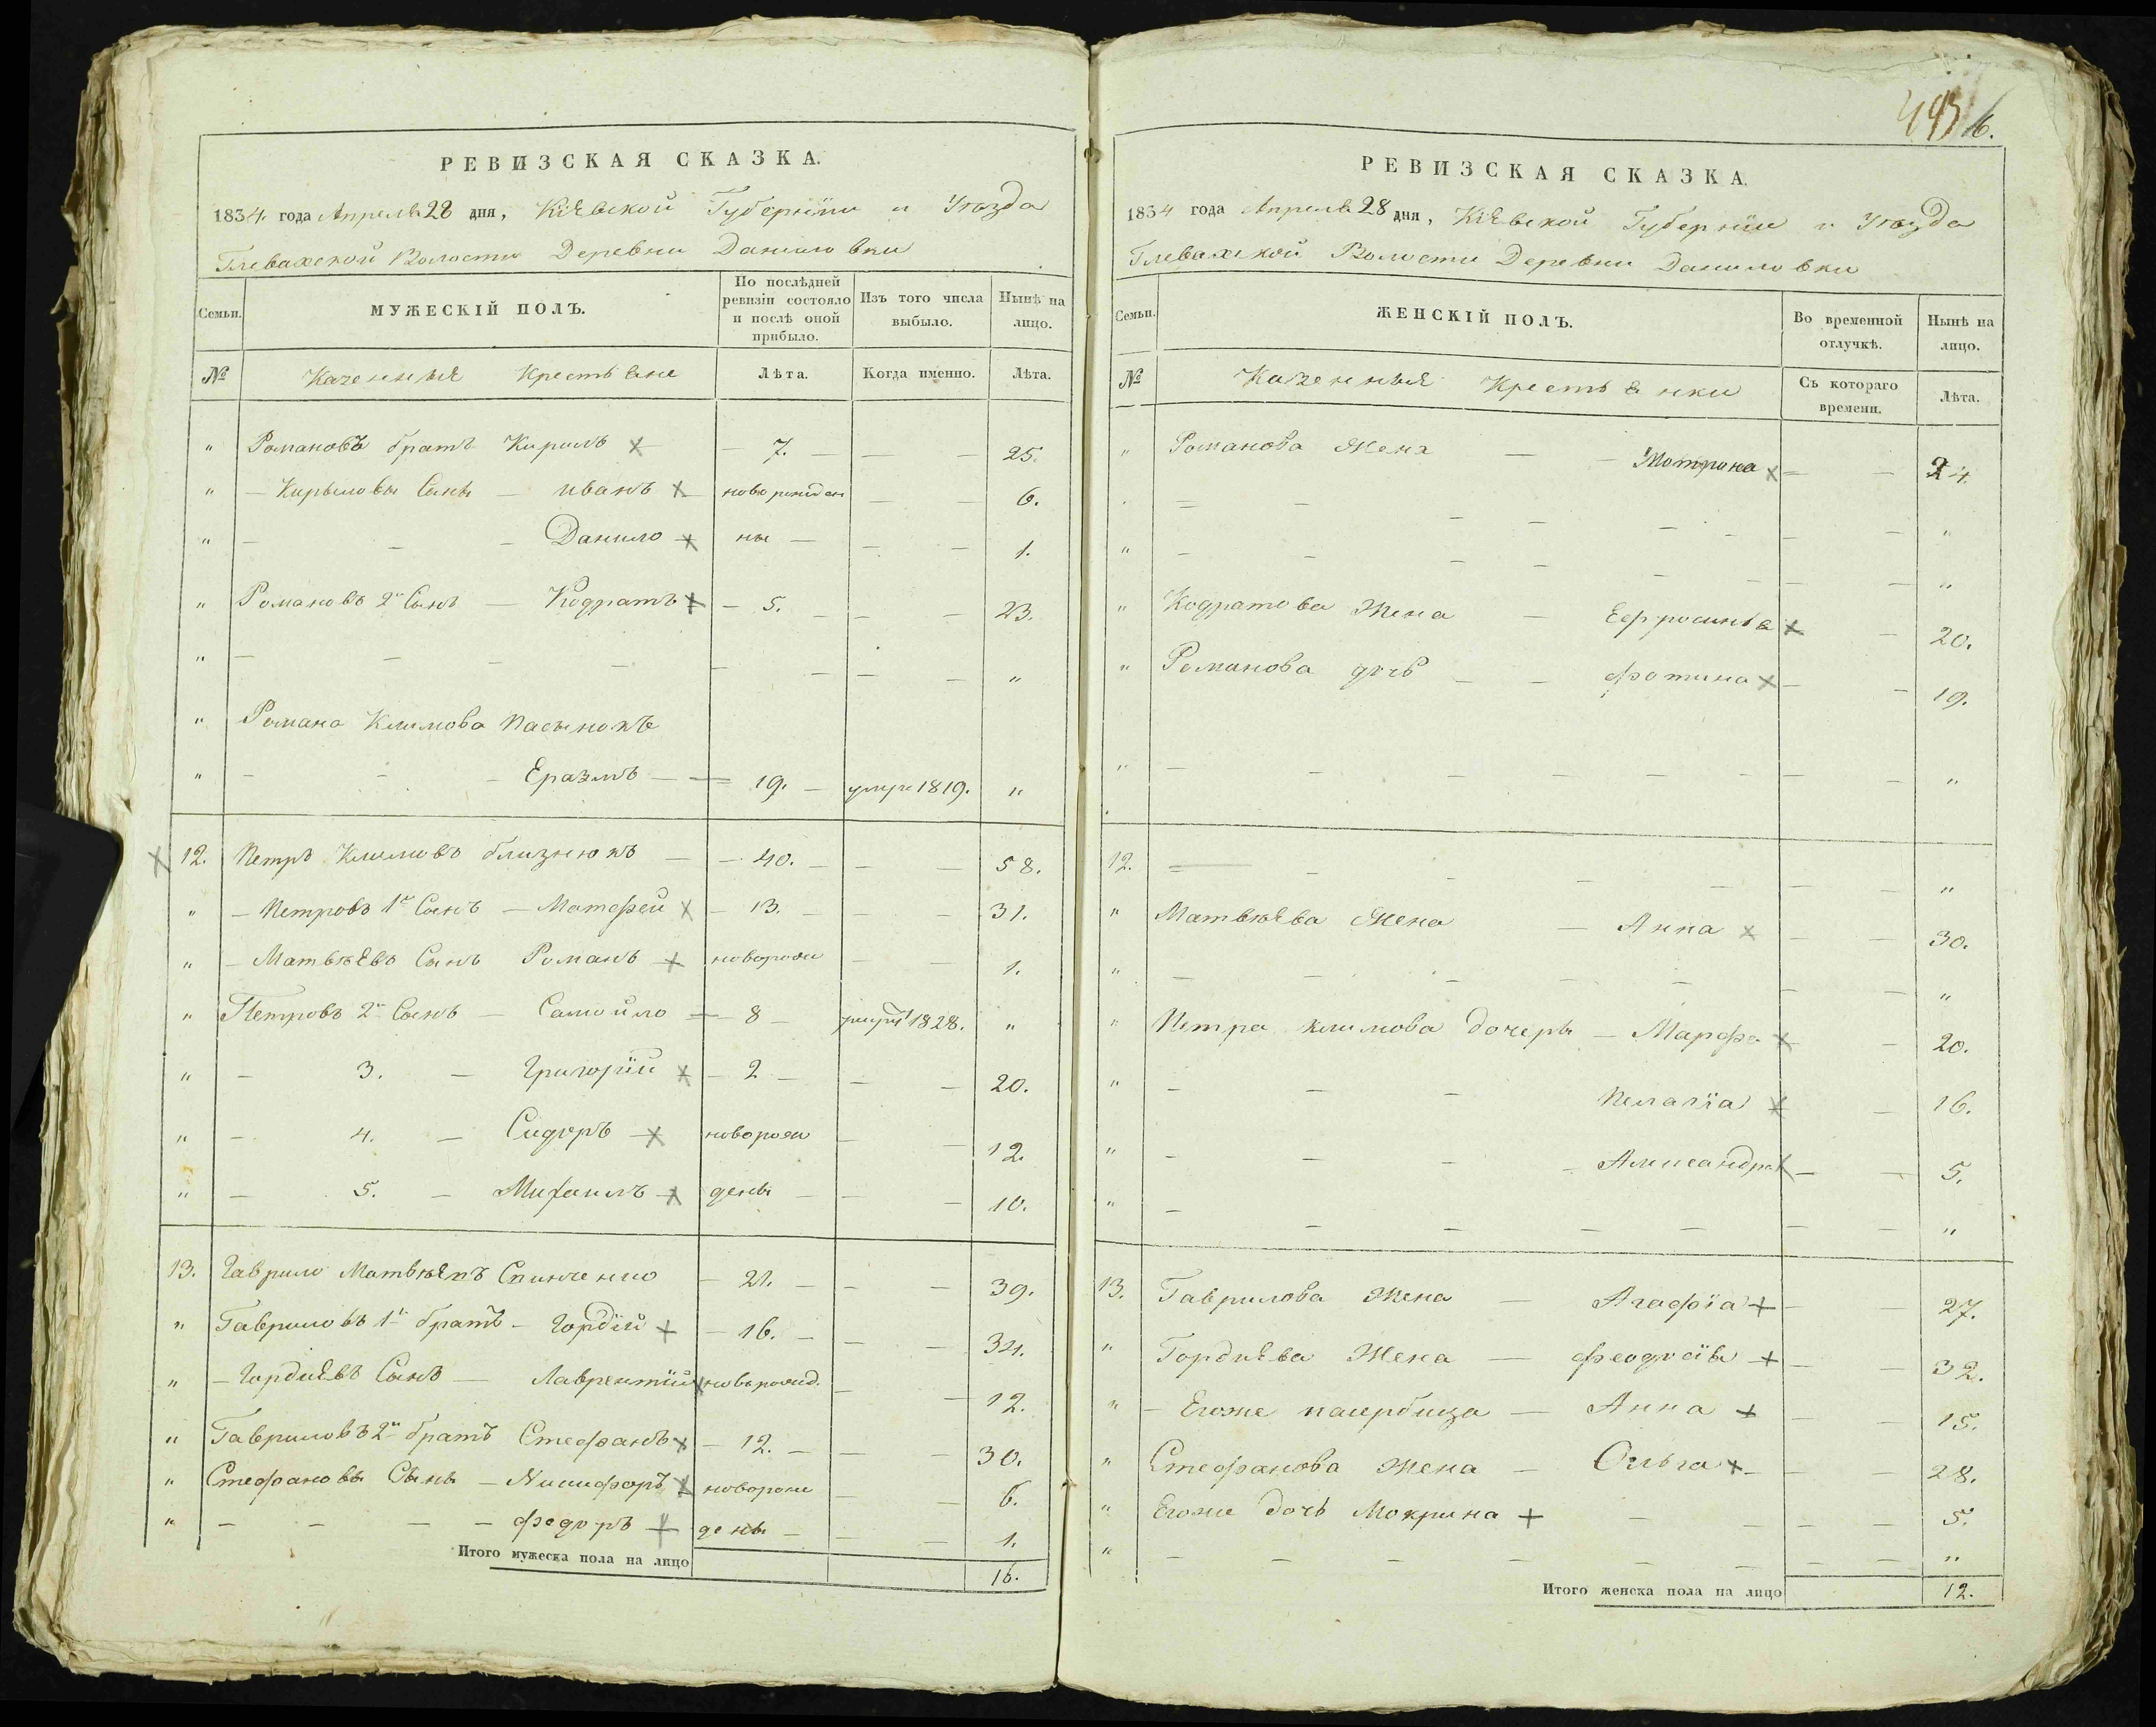 РЕВИЗСКАЯ СКАЗКА.
1834 года Апреля 28 дня, Кіевской Губерніи и Уезда
Глевахской Волости Деревни Даниловки
Семьи.
МУЖЕСКІЙ ПОЛЪ.
По послѣдней ревизіи состояло и послѣ оной прибыло.
Изъ того числа выбыло.
Нынѣ на лицо.
№ Казенные Крестьяне Лѣта. Когда именно. Лѣта.
" Романовъ братъ Кирилъ — 7. — — — 25.
" — Кирыловы Сыны — иванъ новорожден — — 6.
" — — — Данило ны — — — 1.
" Романовъ 2й Сынъ — Кодратъ — 5. — — — 23.
" — — — — — — — — "
" Романа Климова пасынокъ
" — — — Еразмъ — — 19. — умре 1819. "
12. Петръ Климовъ близнюкъ — — 40. — — — 58.
" — Петровъ 1й Сынъ — Матфей — 13. — — — 31.
" — Матвѣевъ Сынъ Романъ новорожд — — 1.
" Петровъ 2й Сынъ — Самойло — 8 — умре 1828. "
" — 3. — Григорій — 2 — — — 20.
" — 4. — Сидоръ новорож — — 12.
" — 5. — Михаилъ дены — — — 10.
13. Гаврило Матвѣевъ — 21. — — — 39.
" Гавриловъ 1й братъ — Гордій — 16. — — — 34.
" — Гордіевъ Сынъ — Лаврентій новорожд. — — 12.
" Гавриловъ 2й братъ Стефанъ — 12. — — — 30.
" Стефановы Сыны — Никифоръ новорож — — 6.
" — — — — Федоръ дены — — — 1.
Итого мужеска пола на лицо 16.
16.
РЕВИЗСКАЯ СКАЗКА.
1834 года Апреля 28 дня, Кіевской Губерніи и Уезда
Глевахской Волости Деревни Даниловки
Семьи.
ЖЕНСКІЙ ПОЛЪ.
Во временной отлучкѣ.
Нынѣ на лицо.
№ Казенные Крестьянки Съ котораго времени. Лѣта.
" Романова Жена — — Мотрона — — 24.
" — — — — — — — — "
" — — — — — — — — "
" Кодратова Жена — Ефросинья — 20.
" Романова дочь — — Фотина — — 19.
" — — — — — — — — "
12. — — — — — — "
" Матвѣева Жена — Анна — — 30.
" — — — — — — — "
" Петра климова дочеры — Марфа — 20.
" — — — Пелагіа — 16.
" — — — — Александра — — 5.
" — — — — — — — "
13. Гаврилова Жена — Агафіа — — 27.
" Гордіева Жена — Феодосія — — 32.
" — Егоже Анна — — 15.
" Стефанова Жена — Ольга — — — 28.
" Егоже дочь Мокрина — — — — — 5.
" — — — — — — — — "
Итого женска пола на лицо 12.